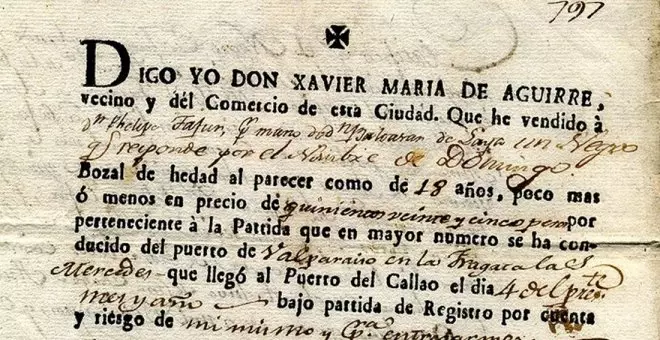 797
DIGO YO DON XAVIER MARIA DE AGUIRRE,
vecino y dél Comercio de esta Ciudad. Que he vendido à
dn Phelipe Jafur, pr mano d dn Baltasar de Laya un Negro
q̃ responde por el Nombre de Domingo.
Bozal de hedad al parecer como de 18 años, poco mas
ó menos en precio de quinientos veinte y cinco pesos por
perteneciente à la Partida que en mayor numero se ha con-
ducido del puerto de Valparaiso en la Fragata la S
Mercedes que llegó al Puerto del Callao el dia 4 del pres.te
mes y año bajo partida de Registro por cuenta
y riesgo de mi mismo y pra